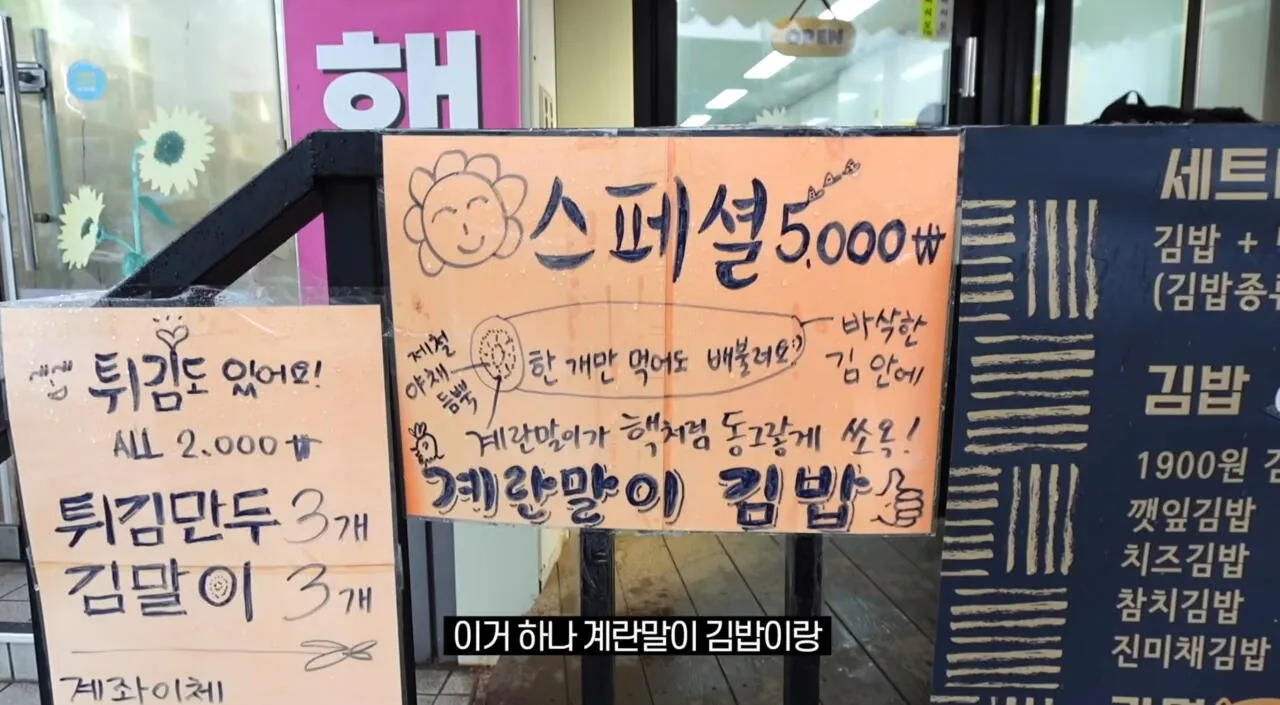 해
OPEN
스페셜 5,000₩
제철
야채
듬뿍
한 개만 먹어도 배불러요:)
바삭한
김 안에
계란말이가 핵처럼 동그랗게 쏘옥!
계란말이 김밥
튀김도 있어요!
ALL 2.000₩
튀김만두 3개
김말이 3개
계좌이체
세트
김밥 +
(김밥종
김밥
1900원
깻잎김밥
치즈김밥
참치김밥
진미채김밥
이거 하나 계란말이 김밥이랑